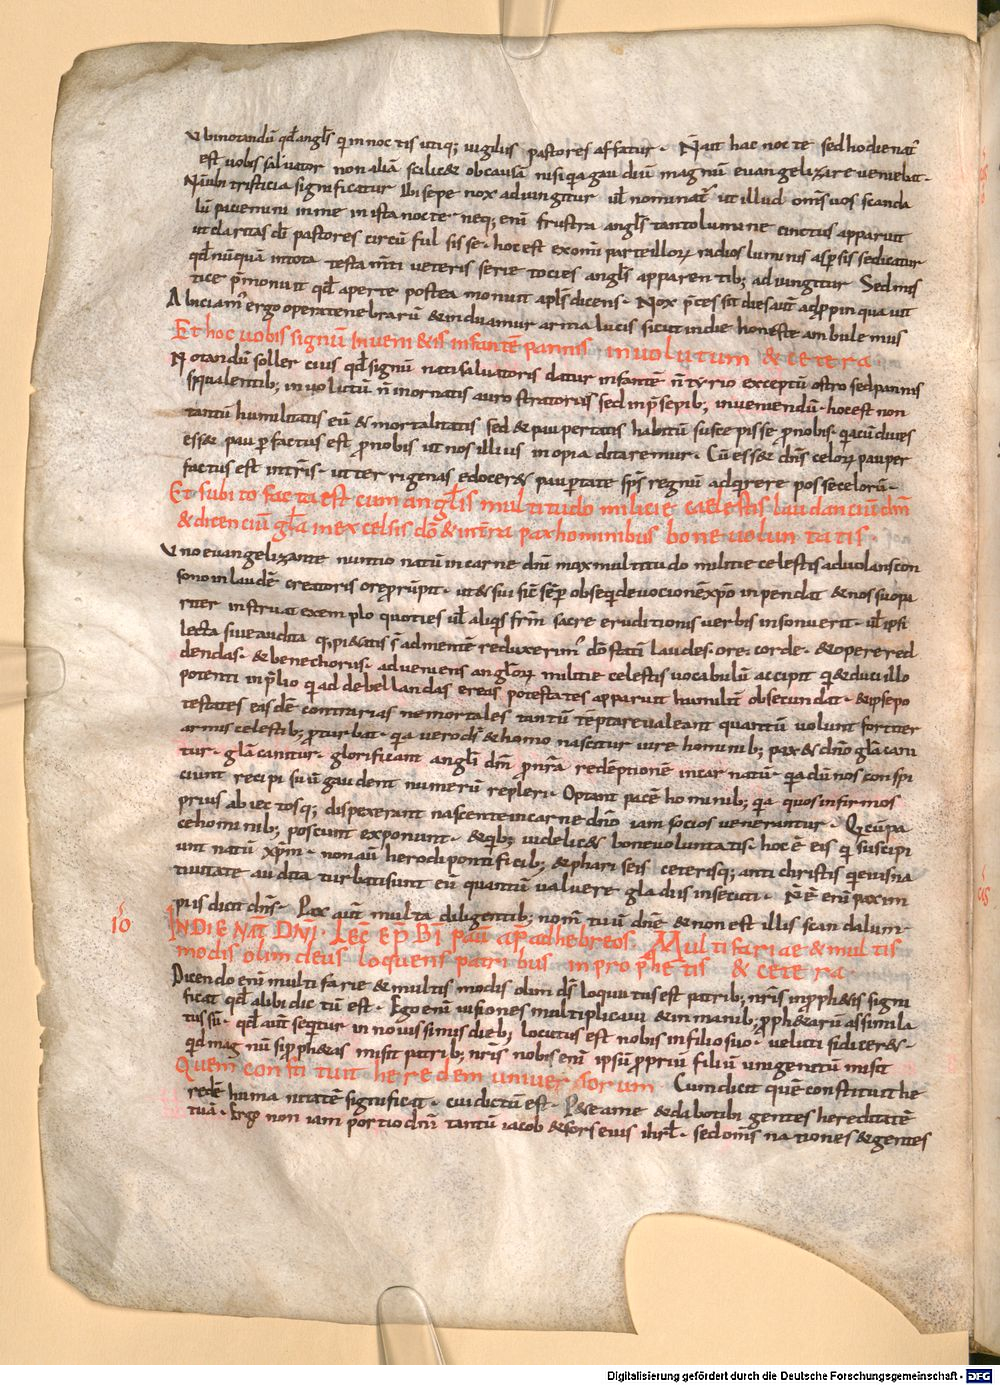 Ubi notandũ qđ angls̃ qui in noctis utiq; vigiliis pastores affatur. Nõ ait hac nocte sed hodie nat᷒
est uobis saluator non aliã scilic& ob causã nisi q̃a gaudiũ magnũ euangelizare ueniebat.
Nã ubi tristicia significatur ibi sepe nox adiungitur ul̃ nominat᷒ ut illud oms̃ uos scanda
lũ paciemini in me in ista nocte neq; enĩ frustra angls̃ tanto lumine cinctus apparuit
ut claritas dĩ pastores circũfulsisse. hoc est ex omĩ parte illorꝝ radios luminis aspsis̃se dicatur
qđ nũquã in tota testam̃ti ueteris serie tocies angls̃ apparentib; adiungitur Sed mis
tice p̃monuit qđ aperte postea monuit apls̃ dicens. Nox p̃cessit dies aut̃ adp̃pinquauit
Abiciam᷒ ergo opera tenebrarũ & induamur arma lucis sicut in die honeste ambulemus
Et hoc uobis signũ Inueni&is infantẽ pannis inuolutum & cetera.
Notandũ soller cius qđ signũ nati saluatoris datur infantẽ ñ tyrio exceptũ ostro sed pannis
squalentib; inuolutũ ñ in ornatis auro stratoriis sed in p̃sepib; inueniendũ. hoc est non
tantũ humilitatis eũ & mortalitatis sed & paupertatis habitũ suscepisse p̃nobis. q̃a cũ diues
ess& paup̃ factus est p̃nobis ut nos illius inopia ditaremur. Cũ ess& dñs celorꝝ pauper
factus est in tr̃is. ut terrigenas edocer& paup̃tate sp̃s regnũ adq̃rere posse celorũ.
Et subito facta est cum angls̃ multitudo milicie caelestis laudanciũ dm̃
& dicenciũ gl̃a in excelsis dõ & in tr̃ra pax hominibus bone uoluntatis.
Uno euangelizante nuntio natũ in carne dnũ mox multitudo militie celestis aduolans con
sono in laudẽ creatoris ore p̃rũpit. ut & sui sic̃ semp̃ obseq̃ deuocionẽ xp̃o inpendat & nos suo pa
riter instruat exemplo quoties ul̃ aliqis frm̃ sacre eruditionis uerbis insonuerit. ul̃ ipsi
lecta siue audita q; pi&atis s̃ ad mentẽ reduxerim᷒ dõ statĩ laudes. ore. corde. & opere red
dendas. & bene chorus adueniens anglorꝝ militie celestis uocabulũ accipit qi & duci illo
potenti in p̃lio qi ad debellandas ereas potestates apparuit humilit̃ obsecundat. & ipse po
testates easdẽ contrarias ne mortales tantũ tẽptare ualeant quantũ uolunt fortiter
armis celestib; p̃turbat. q̃a uero ds̃ & homo nascitur iure hominib; pax & dñõ gl̃a can
tur. gl̃a cantur. glorificant angli̇ dm̃ p̃ nr̃a redẽptione incarnatũ. q̃a dũ nos conspi
ciunt recipi suũ gaudent numerũ repleri. Optant pacẽ hominib; q̃a quos infirmos
prius abiectosq; dispexerant nascente in carne dñõ iam socios uenerantur. Qi cũ pa
ce hominib; poscunt exponunt. & qib; uidelic& bone uoluntatis. hoc ẽ eis qi suscipi
unt natũ xp̃m. non aũ herodi pontificib; & phariseis ceterisq; antichristis q̃ eius na
tiuitate audita turbati sunt eũ quantũ ualuere gladiis insecuti. Nẽ ẽ enĩ pax im
piis dicit dñs. Pax aut̃ multa diligentib; nom̃ tuũ dñe & non est illis scandalum.
IN DIE NAT̃ DÑI. Lec̃ Ep̃ Bĩ pauli ap̃ ad hebreos. Multifariae & multis
modis olim deus loquens patribus in prophetis & cetera.
Dicendo enĩ multifarie & multis modis olim ds̃ loquutus est patrib; nr̃is in p̃ph&is signi
ficat qđ alibi dictũ est. Ego enĩ uisiones multiplicaui & in manib; p̃ph&arũ assimila
tus sũ. qđ aũt seq̃tur in nouissimis dieb; locutus est nobis in filio suo. uelut si dicer&.
qid magnũ si p̃ph&as misit patrib; nr̃is nobis enĩ ipsũ p̃priũ filiũ unigenitũ misit
Quem constituit heredem uniuersorum Cum dicit quẽ constituit he
redẽ humanitatẽ significat. cui dictũ est. P&e a me & dabo tibi gentes hereditatẽ
tuã. Ergo non iam portio dñi tantũ iacob & sors eius isrl̃. sed oms̃ nationes & gentes
Digitalisierung gefördert durch die Deutsche Forschungsgemeinschaft - DFG